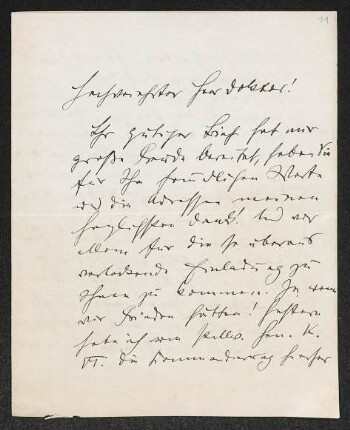 Hochverehrter Herr Doktor!
Ihr gütiger Brief hat mir
große Freude bereitet, haben Sie
für Ihre freundlichen Worte
und die Adressen meinen
herzlichsten Dank! Und vor
allem für die so überaus
verlockende Einladung zu
Ihnen zu kommen. Ja, wenn
wir Frieden hätten! Gestern
habe ich vom stellv. Gen. K.
VI. die Kommandierung hierher